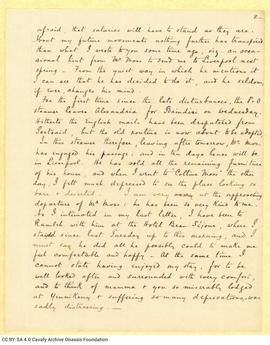 2
afraid, that salaries will have to stand as they are.
About my future movements nothing further has transpired
than what I wrote to you some time ago, viz. an occa-
sional hint from Mr Moss to send me to Liverpool next
spring. From the quiet way in which he mentions it
I can see that he has decided to do it, and he seldom
if ever, changes his mind.
For the first time since the late disturbances, the P&O
steamer leaves Alexandria for Brindisi on Wednesday.
Hitherto the English mails have been despatched from
Portsaid, but the old routine is now about to be adopted.
In this steamer therefore, leaving after tomorrow, Mr Moss
has engaged his passage; and in ten days hence will be
in Liverpool. He has sold all the remaining furniture
of his house, and when I went to "Collina Moss" the other
day, I felt much depressed to see the place looking so
bare & deserted. I am very sorry at the approaching
departure of Mr Moss: he has been so very kind to me.
As I intimated in my last letter, I have been to
Ramleh with him at the Hotel Beau Séjour, where I
stayed since last Tuesday up to this morning, and I
must say he did all he possibly could to make me
feel comfortable and happy. At the same time I
cannot state having enjoyed my stay, for to be
well looked after and surrounded with every comfort,
and to think of mamma & you so miserably lodged
at Yenikeuy & suffering so many deprivations, was
sadly distressing. —
CC BY-SA 4.0 Cavafy Archive Onassis Foundation